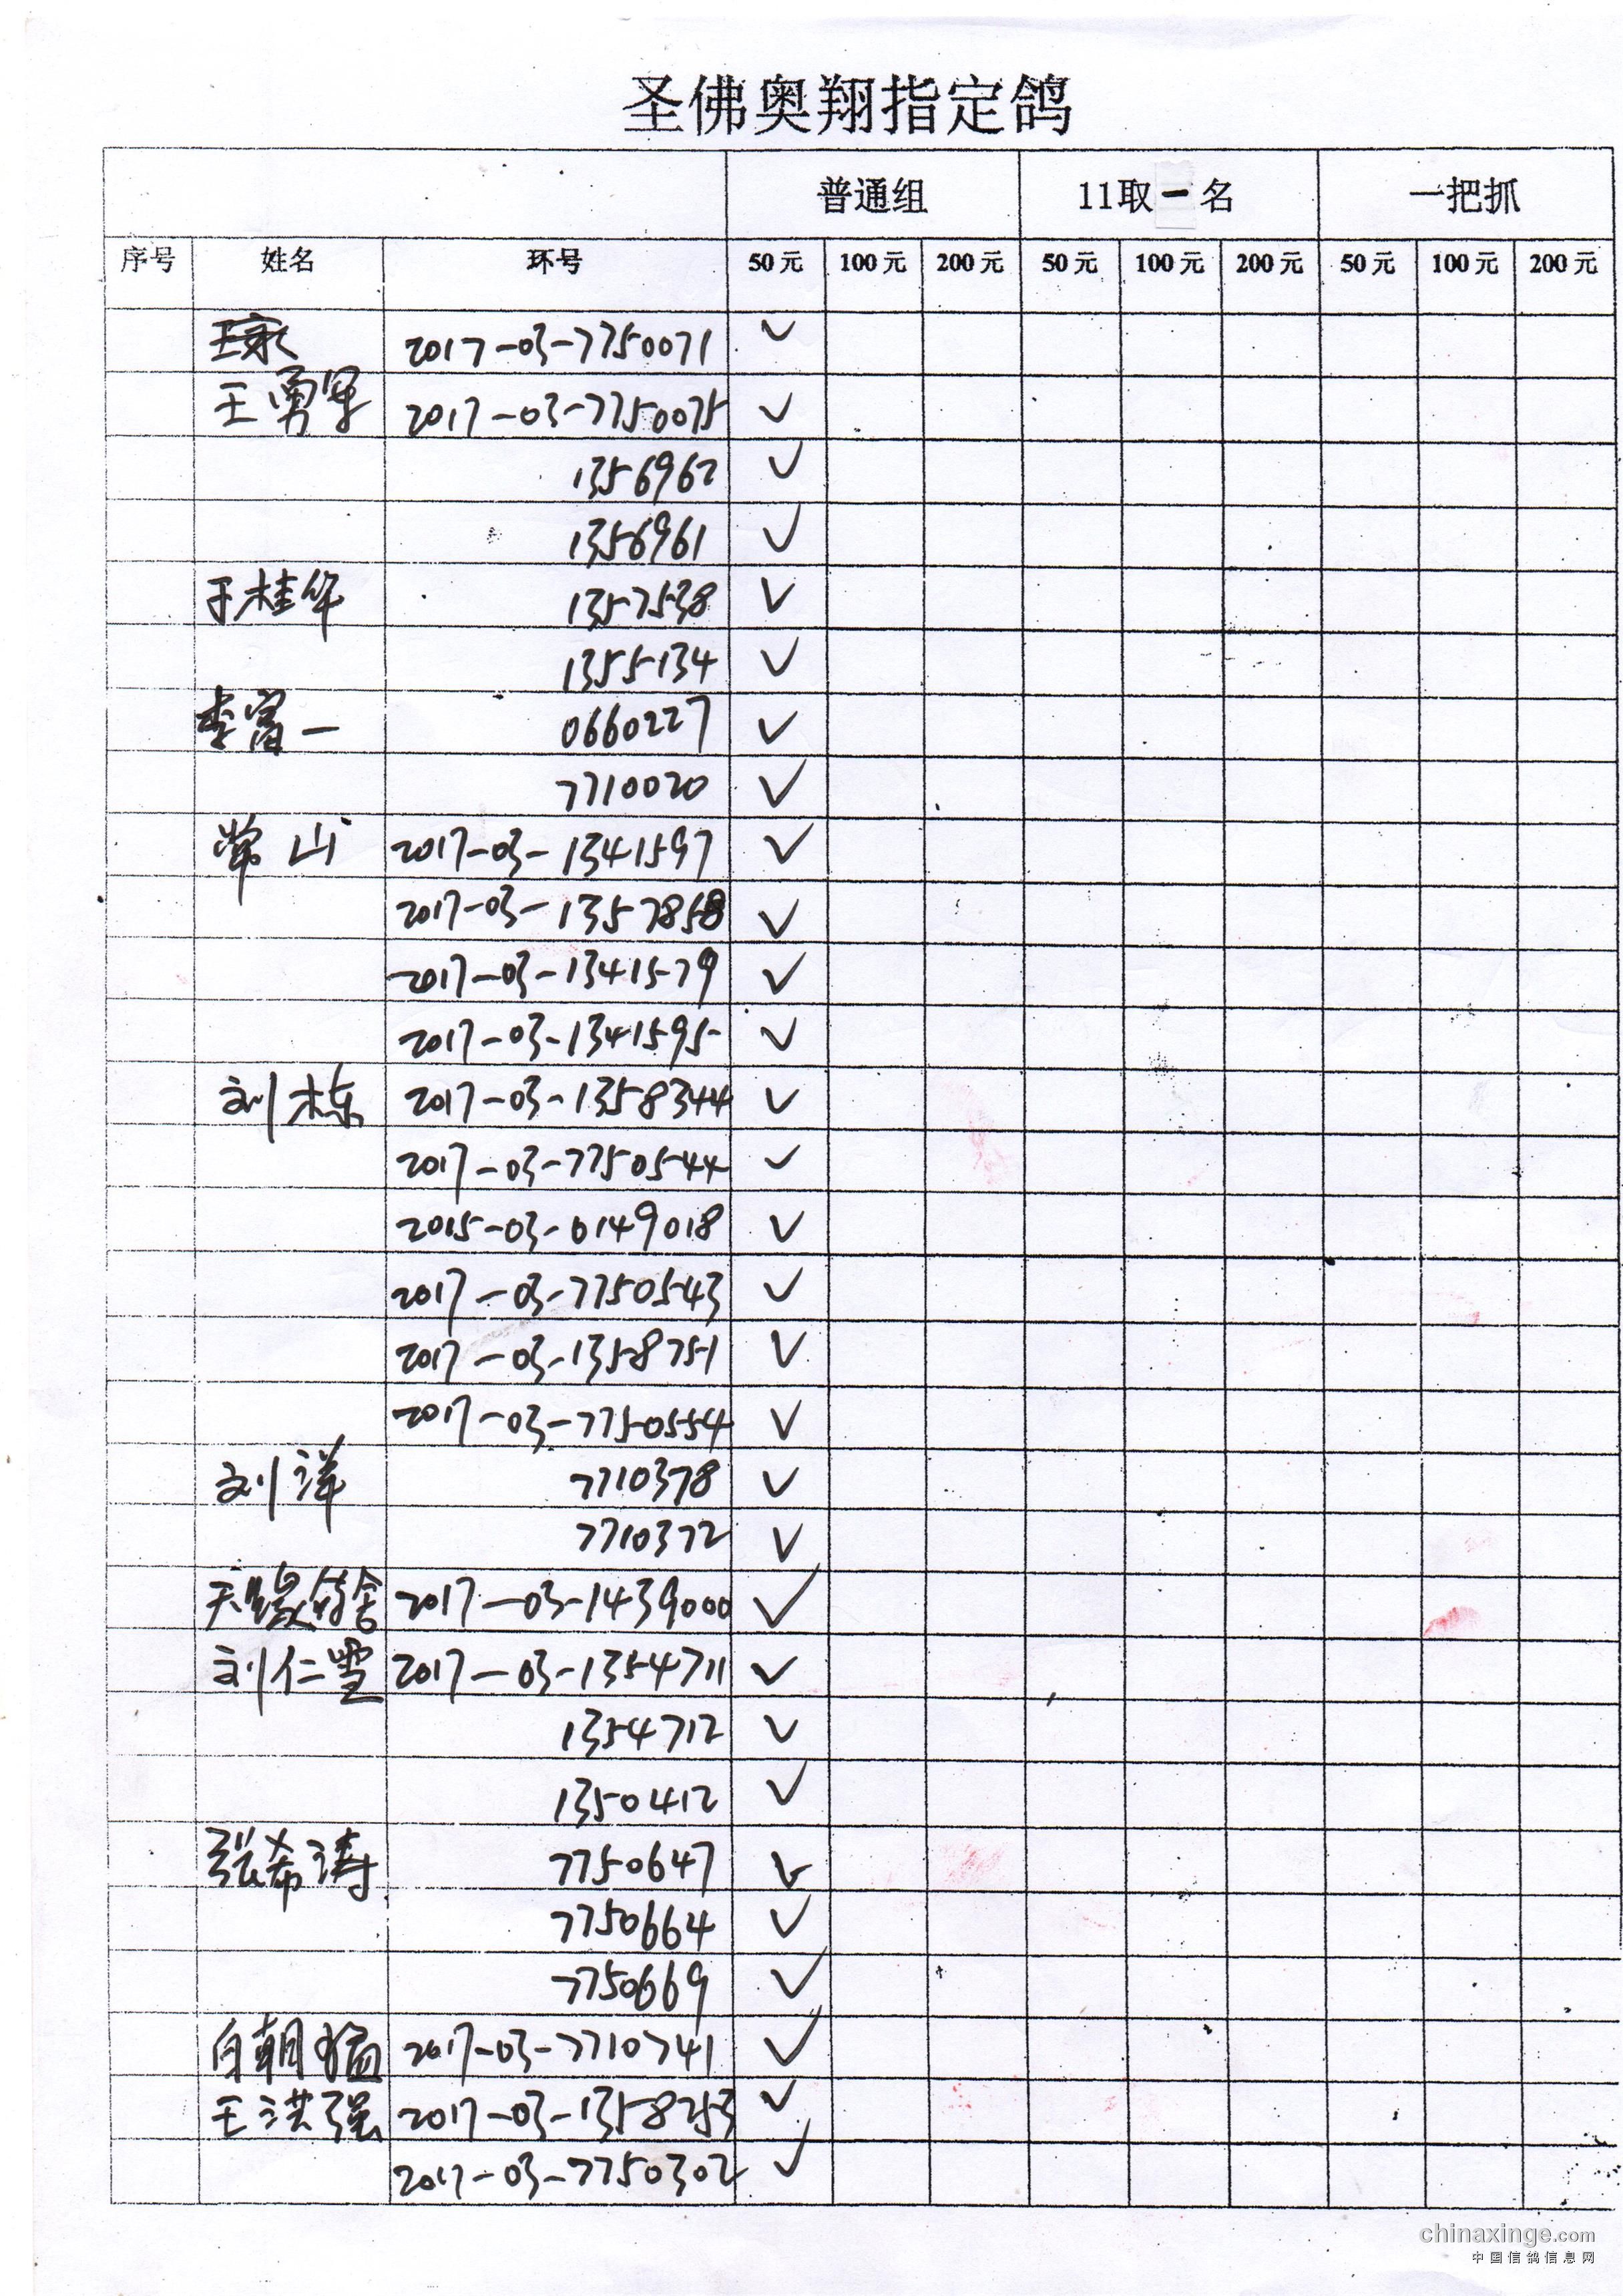 圣佛奥翔指定鸽
普通组 11取一名 一把抓
序号 姓名 环号 50元 100元 200元 50元 100元 200元 50元 100元 200元
2017-03-7750071 ✓
王勇军 2017-03-7750075 ✓
1356962 ✓
1356961 ✓
于桂华 1357538 ✓
1355134 ✓
李富一 0660227 ✓
7710020 ✓
常山 2017-03-1341597 ✓
2017-03-1357858 ✓
2017-03-1341579 ✓
2017-03-1341595 ✓
刘栋 2017-03-1358344 ✓
2017-03-7750544 ✓
2015-03-0149018 ✓
2017-03-7750543 ✓
2017-03-1358751 ✓
2017-03-7750554 ✓
刘洋 7710378 ✓
7710372 ✓
天缘鸽舍 2017-03-1439000 ✓
刘仁雪 2017-03-1354711 ✓
1354712 ✓
1350412 ✓
张希涛 7750647 ✓
7750664 ✓
7750669 ✓
白朝猛 2017-03-7710741 ✓
王洪强 2017-03-1358253 ✓
2017-03-7750302 ✓
chinaxinge.com
中国信鸽信息网